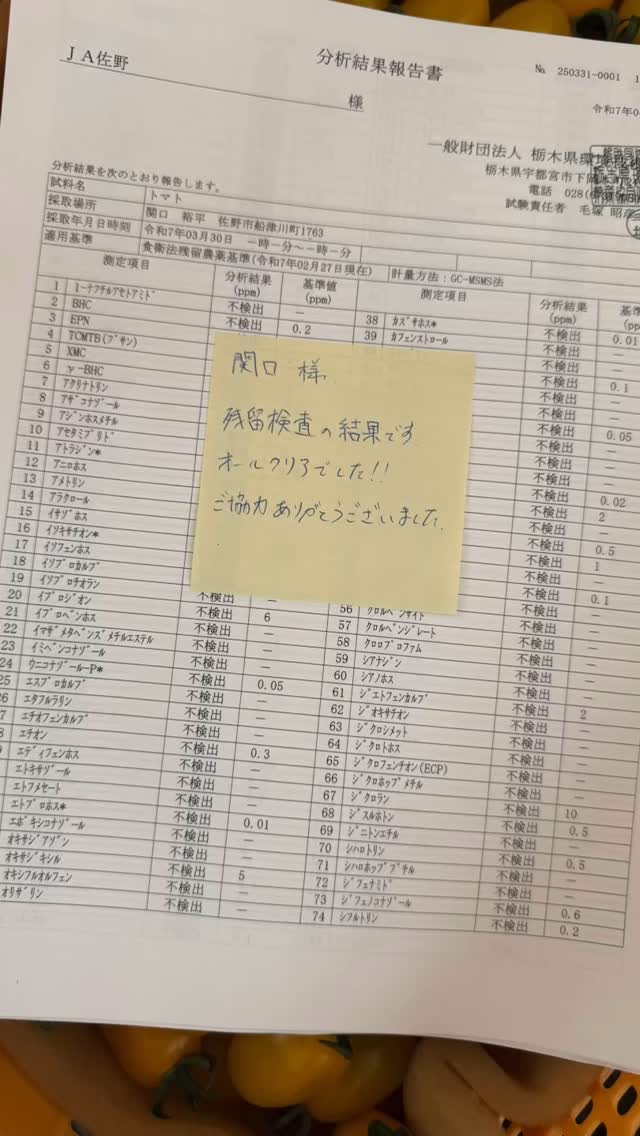 JA佐野
様
分析結果報告書
№ 250331-0001
令和7年0
一般財団法人 栃木県環境
栃木県宇都宮市下
電話 028(
試験責任者 毛塚 昭
分析結果を次のとおり報告します。
試料名 トマト
採取場所 関口 裕平 佐野市船津川町1763
採取年月日時刻 令和7年03月30日 －時－分～－時－分
適用基準 食衛法残留農薬基準(令和7年02月27日現在) 計量方法：GC-MSMS法
測定項目 分析結果(ppm) 基準値(ppm) 測定項目 分析結果(ppm) 基準
1 1-ﾅﾌﾀﾙｱｾﾄｱﾐﾄﾞ 不検出 － 38 ｶｽﾞｻﾎｽ* 不検出 0.01
2 BHC 不検出 0.2 39 ｶﾌｪﾝｽﾄﾛｰﾙ 不検出 －
3 EPN
4 TCMTB(ﾌﾞｻﾝ)
5 XMC
6 γ-BHC
7 ｱｸﾘﾅﾄﾘﾝ
8 ｱｻﾞｺﾅｿﾞｰﾙ
9 ｱｼﾞﾝﾎｽﾒﾁﾙ
10 ｱｾﾀﾐﾌﾟﾘﾄﾞ
11 ｱﾄﾗｼﾞﾝ*
12 ｱﾆﾛﾎｽ
13 ｱﾒﾄﾘﾝ
14 ｱﾗｸﾛｰﾙ
15 ｲｻｿﾞﾎｽ
16 ｲｿｷｻﾁｵﾝ*
17 ｲｿﾌｪﾝﾎｽ
18 ｲｿﾌﾟﾛｶﾙﾌﾞ
19 ｲｿﾌﾟﾛﾁｵﾗﾝ
20 ｲﾌﾟﾛｼﾞｵﾝ 不検出
21 ｲﾌﾟﾛﾍﾞﾝﾎｽ 不検出 6
22 ｲﾏｻﾞﾒﾀﾍﾞﾝｽﾞﾒﾁﾙｴｽﾃﾙ 不検出 －
23 ｲﾐﾍﾞﾝｺﾅｿﾞｰﾙ 不検出 －
24 ｳﾆｺﾅｿﾞｰﾙ-P* 不検出 －
25 ｴｽﾌﾟﾛｶﾙﾌﾞ 不検出 0.05
ｴﾀﾙﾌﾙﾗﾘﾝ 不検出 －
ｴﾁｵﾌｪﾝｶﾙﾌﾞ 不検出 －
ｴﾁｵﾝ 不検出 －
ｴﾃﾞｨﾌｪﾝﾎｽ 不検出 0.3
ｴﾄｷｻｿﾞｰﾙ 不検出 －
ｴﾄﾌﾒｾｰﾄ 不検出 －
ｴﾄﾌﾟﾛﾎｽ* 不検出 －
ｴﾎﾟｷｼｺﾅｿﾞｰﾙ 不検出 0.01
ｵｷｻｼﾞｱｿﾞﾝ 不検出 －
ｵｷｻｼﾞｷｼﾙ 不検出 －
ｵｷｼﾌﾙｵﾙﾌｪﾝ 不検出 5
ｵﾘｻﾞﾘﾝ 不検出 －
不検出 0.1
不検出 0.05
不検出 0.02
不検出 2
不検出 0.5
不検出 1
不検出 0.1
56 ｸﾛﾙﾍﾞﾝｻｲﾄﾞ 不検出
57 ｸﾛﾙﾍﾞﾝｼﾞﾚｰﾄ 不検出 －
58 ｸﾛﾛﾌﾟﾛﾌｧﾑ 不検出 －
59 ｼｱﾅｼﾞﾝ 不検出 －
60 ｼｱﾉﾎｽ 不検出 －
61 ｼﾞｴﾄﾌｪﾝｶﾙﾌﾞ 不検出 2
62 ｼﾞｵｷｻﾁｵﾝ 不検出 －
63 ｼﾞｸﾛｼﾒｯﾄ 不検出 －
64 ｼﾞｸﾛﾄﾎｽ 不検出 －
65 ｼﾞｸﾛﾌｪﾝﾁｵﾝ(ECP) 不検出 －
66 ｼﾞｸﾛﾎｯﾌﾟﾒﾁﾙ 不検出 －
67 ｼﾞｸﾛﾗﾝ 不検出 10
68 ｼﾞｽﾙﾎﾄﾝ 不検出 0.5
69 ｼﾞﾆﾄﾝｴﾁﾙ 不検出 －
70 ｼﾊﾛﾄﾘﾝ 不検出 0.5
71 ｼﾊﾛﾎｯﾌﾟﾌﾞﾁﾙ 不検出 －
72 ｼﾞﾌｪﾅﾐﾄﾞ 不検出 －
73 ｼﾞﾌｪﾉｺﾅｿﾞｰﾙ 不検出 0.6
74 ｼﾌﾙﾄﾘﾝ 不検出 0.2
関口 様
残留検査の結果です
オールクリアでした!!
ご協力ありがとうございました.